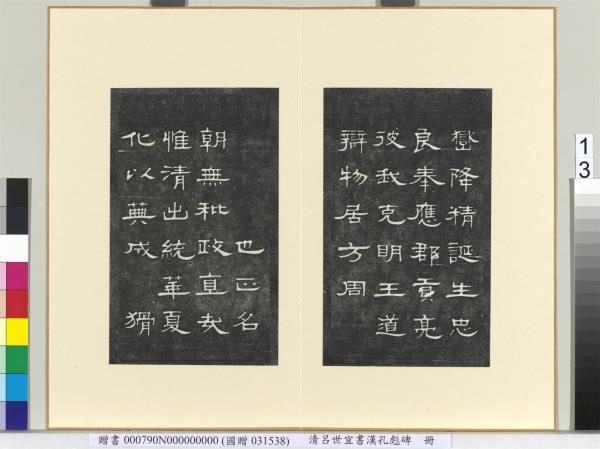 嶽降精誕生忠
良奉應郡貢亮
彼我克明王道
辯物居方周
也正名
朝無秕政直哉
惟清出統華夏
化以典成 猾
贈書 000790N000000000 (國贈 031538) 清呂世宜書漢孔彪碑 冊
13